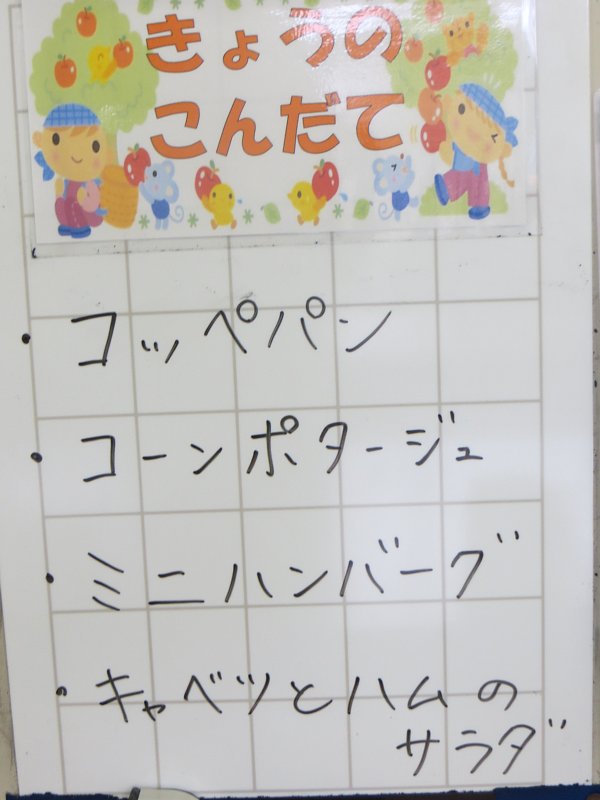 きょうの
こんだて
・コッペパン
・コーンポタージュ
・ミニハンバーグ
・キャベツとハムの
サラダ